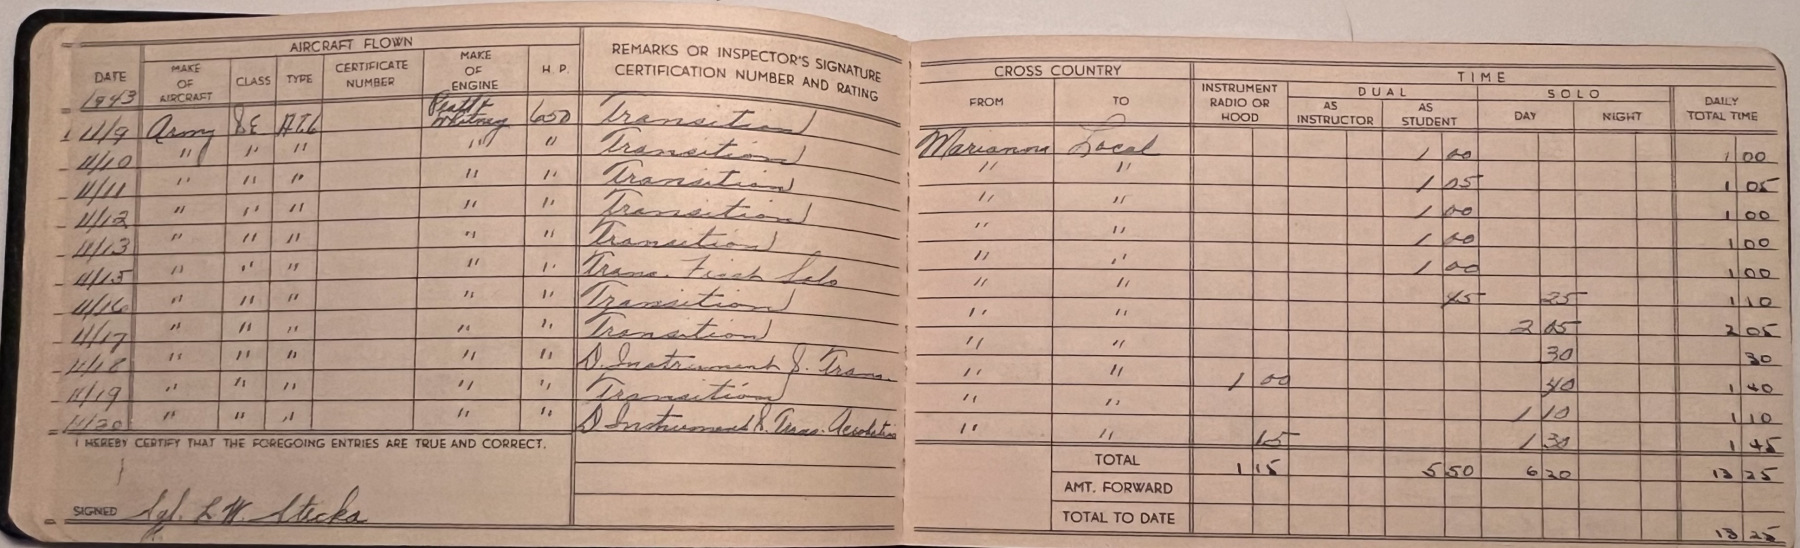 AIRCRAFT FLOWN
DATE 1943 MAKE OF AIRCRAFT CLASS TYPE CERTIFICATE NUMBER MAKE OF ENGINE H. P. REMARKS OR INSPECTOR'S SIGNATURE CERTIFICATION NUMBER AND RATING
11/9 Army SE AT6 Pratt & Whitney 650 Transition
11/10 " " " " " Transition
11/11 " " " " " Transition
11/12 " " " " " Transition
11/13 " " " " " Transition
11/15 " " " " " Trans. First Solo
11/16 " " " " " Transition
11/17 " " " " " Transition
11/18 " " " " " D. Instrument S. Trans.
11/19 " " " " " Transition
11/20 " " " " " D Instrument S. Trans.
I HEREBY CERTIFY THAT THE FOREGOING ENTRIES ARE TRUE AND CORRECT.
SIGNED Sgt. L W. Stecks
CROSS COUNTRY TIME
FROM TO INSTRUMENT RADIO OR HOOD DUAL SOLO DAILY TOTAL TIME
AS INSTRUCTOR AS STUDENT DAY NIGHT
Marianna Local 1 00 1 00
" " 1 05 1 05
" " 1 00 1 00
" " 1 00 1 00
" " 1 00 1 00
" " 45 25 1 10
" " 2 05 2 05
" " 30 30
" " 1 00 40 1 40
" " 1 10 1 10
" " 15 1 30 1 45
TOTAL 1 15 5 50 6 20 13 25
AMT. FORWARD
TOTAL TO DATE 13 25